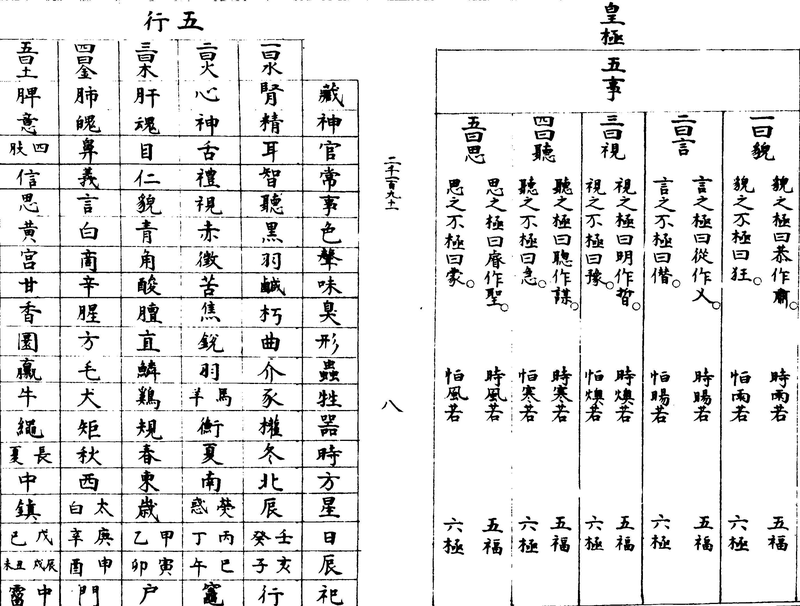 皇極
五事
一曰貌
貌之極曰恭作肅。
貌之不極曰狂。
時雨若
恒雨若
五福
六極
二曰言
言之極曰從作乂。
言之不極曰僭。
時暘若
恒暘若
五福
六極
三曰視
視之極曰明作哲。
視之不極曰豫。
時燠若
恒燠若
五福
六極
四曰聽
聽之極曰聰作謀。
聽之不極曰急。
時寒若
恒寒若
五福
六極
五曰思
思之極曰睿作聖。
思之不極曰蒙。
時風若
恒風若
五福
六極
二千一百九十一
八
五行
藏 神 官 常 事 色 聲 味 臭 形 蟲 牲 器 時 方 星 日 辰 祀
一曰水 腎 精 耳 智 聽 黑 羽 鹹 朽 曲 介 豕 權 冬 北 辰 壬癸 亥子 行
二曰火 心 神 舌 禮 視 赤 徵 苦 焦 銳 羽 馬羊 衡 夏 南 熒惑 丙丁 巳午 竈
三曰木 肝 魂 目 仁 貌 青 角 酸 膻 直 鱗 鷄 規 春 東 歲 甲乙 寅卯 户
四曰金 肺 魄 鼻 義 言 白 商 辛 腥 方 毛 犬 矩 秋 西 太白 庚辛 申酉 門
五曰土 脾 意 四肢 信 思 黃 宮 甘 香 圜 臝 牛 繩 長夏 中 鎮 戊己 辰戌丑未 中霤